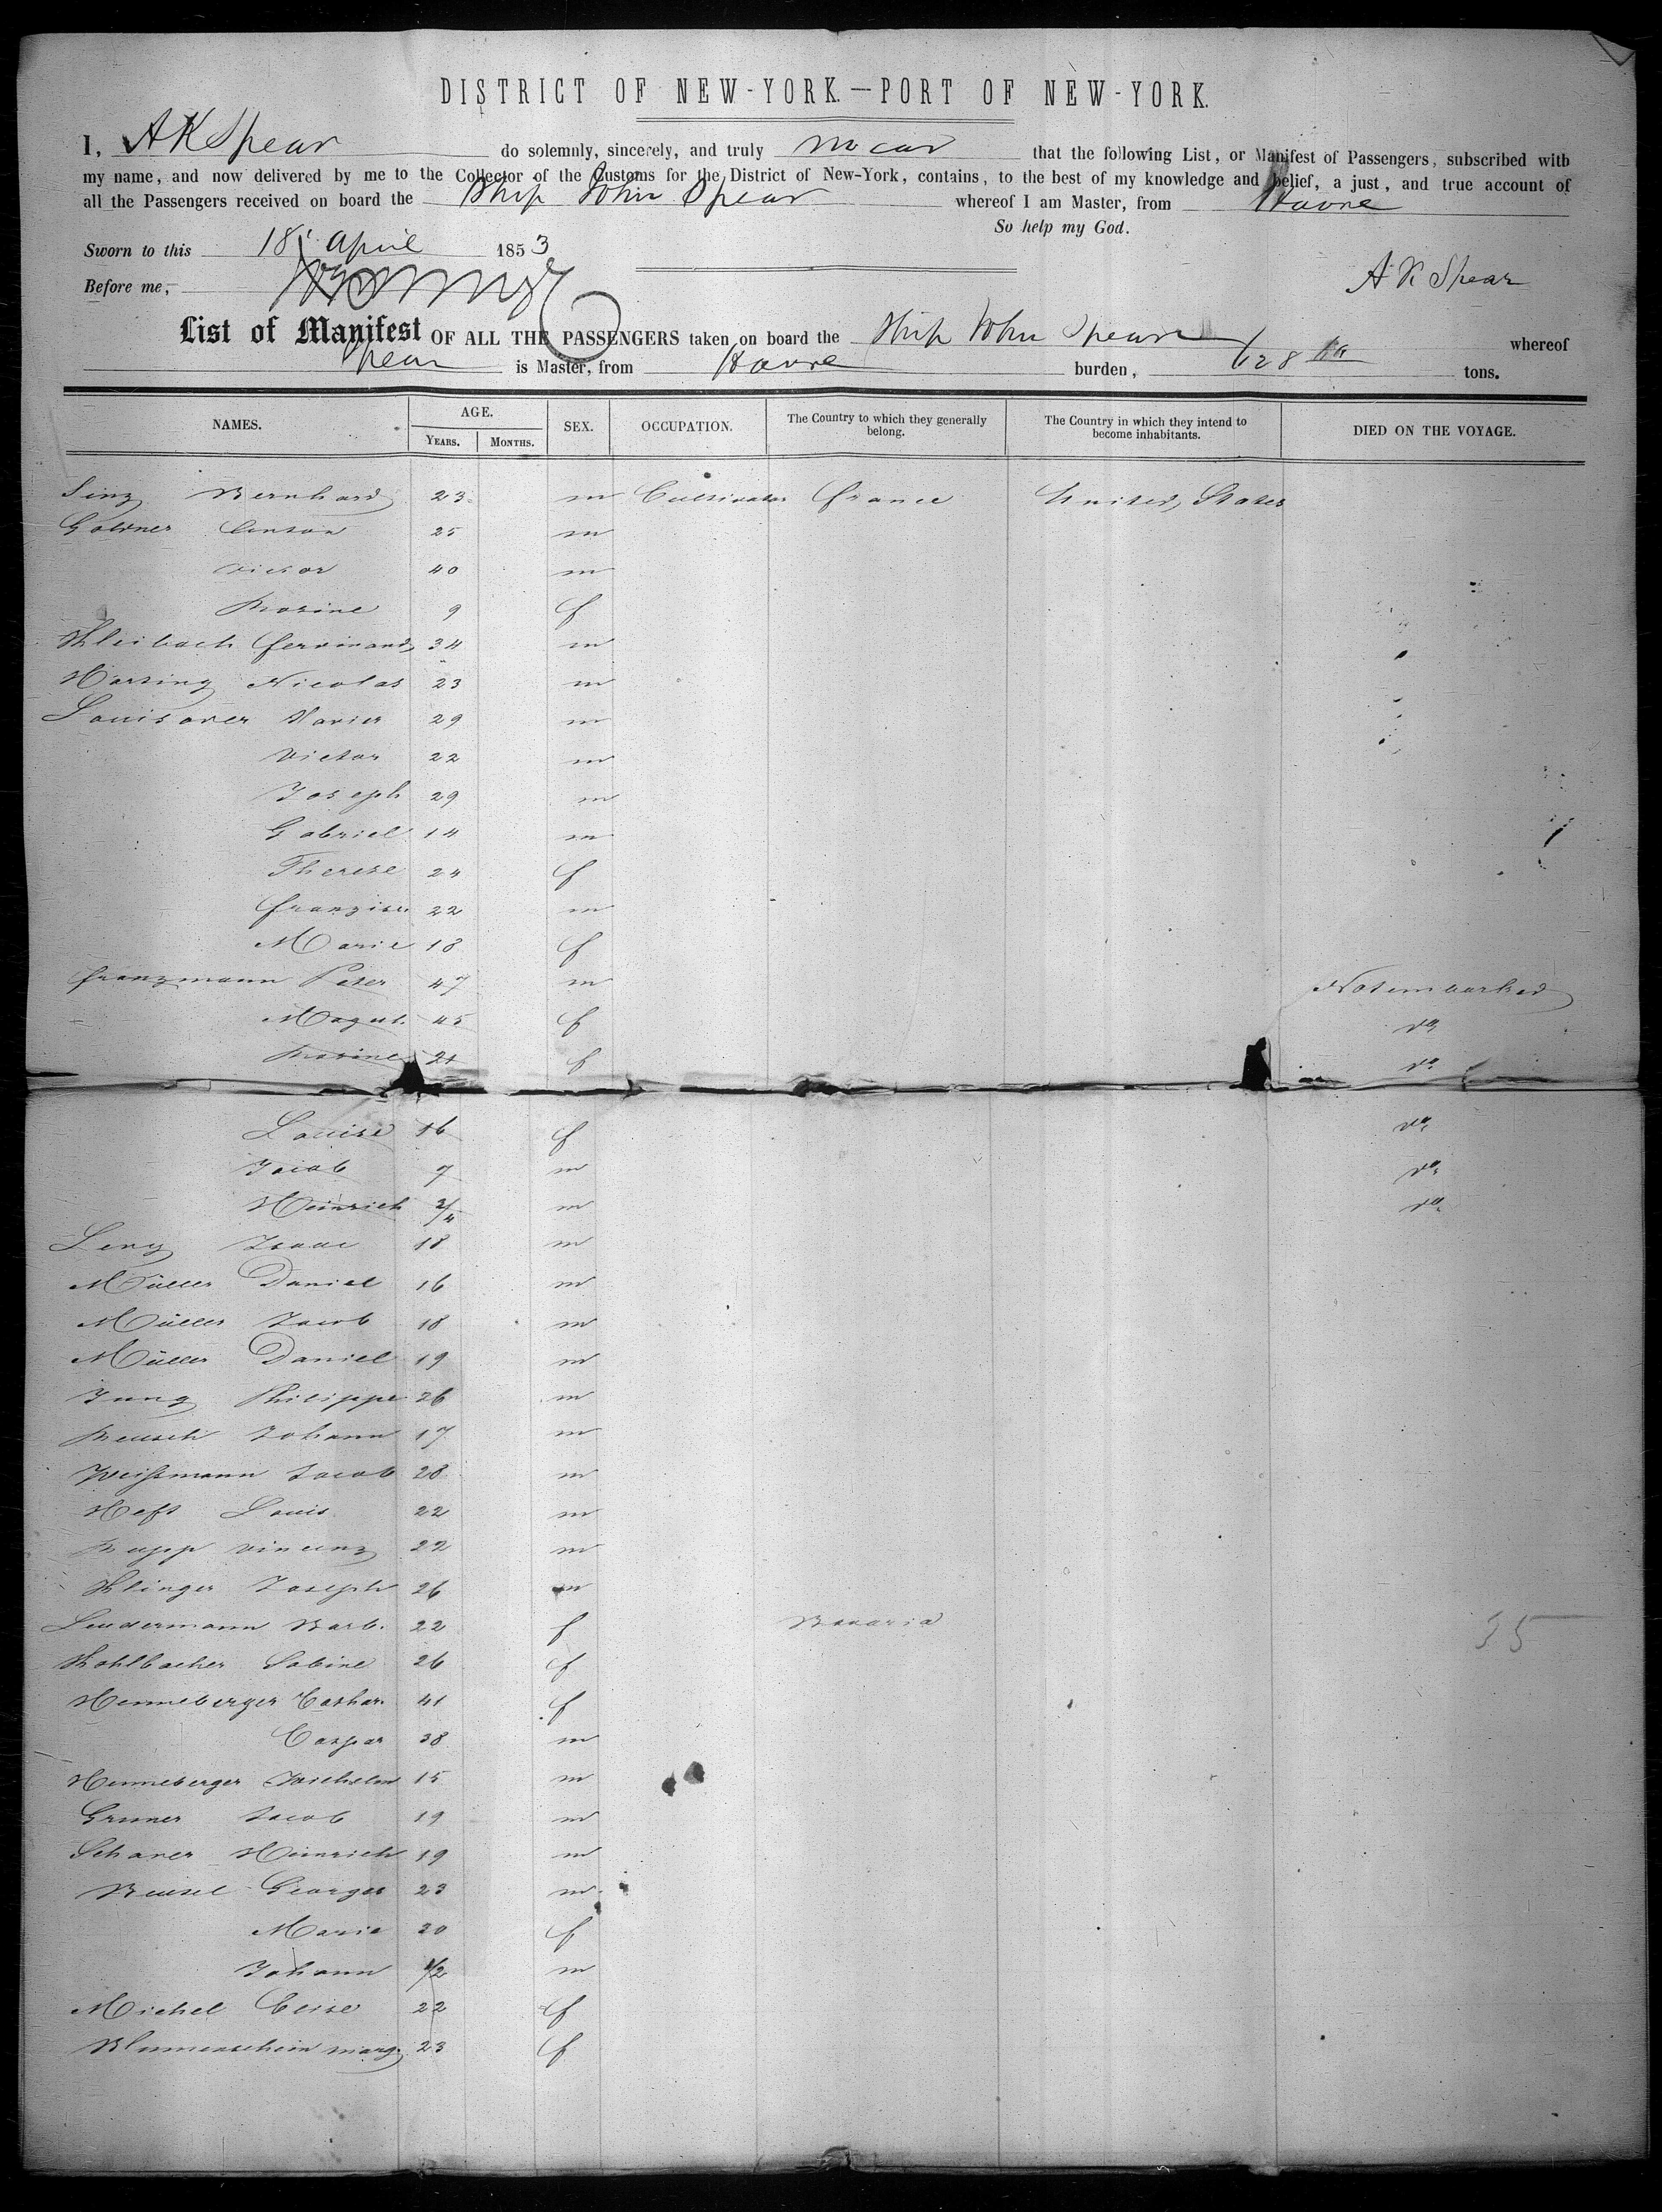 DISTRICT OF NEW-YORK.—PORT OF NEW-YORK.
I, A K Spear do solemnly, sincerely, and truly swear that the following List, or Manifest of Passengers, subscribed with
my name, and now delivered by me to the Collector of the Customs for the District of New-York, contains, to the best of my knowledge and belief, a just, and true account of
all the Passengers received on board the Ship John Spear whereof I am Master, from Havre
So help my God.
Sworn to this 18 April 1853
Before me, A K Spear
List of Manifest OF ALL THE PASSENGERS taken on board the Ship John Spear whereof
Spear is Master, from Havre burden, 628 tons.
NAMES. AGE. YEARS. MONTHS. SEX. OCCUPATION. The Country to which they generally belong. The Country in which they intend to become inhabitants. DIED ON THE VOYAGE.
Sinz Bernhard 23 m Cultivator france United States
25 m
Victor 40 m
Rosine 9 f
Kleibach ferdinand 34 m
Harsing Nicolas 23 m
Xavier 29 m
Victor 22 m
Joseph 29 m
Gabriel 14 m
Therese 24 f
22 m
Marie 18 f
franzmann Peter 47 m Not embarked
Magd. 45 f do
Rosine 21 f do
Louise 16 f do
Jacob 7 m do
Heinrich 3/4 m do
Isaac 18 m
Müller Daniel 16 m
Müller Jacob 18 m
Müller Daniel 19 m
Jung Philippe 26 m
Reusch Johann 17 m
Weißmann Jacob 28 m
Heft Louis 22 m
Rupp Vincenz 22 m
Klinger Joseph 26 m
Leudermann Barb. 22 f Bavaria 35
Kohlbacher Sabine 26 f
Henneberger Cathar. 41 f
Caspar 38 m
Henneberger Wilhelm 15 m
Gruner Jacob 19 m
Schaner Heinrich 19 m
Beusel Georges 23 m
Marie 20 f
Johann 1/2 m
Michel Elise 22 f
Blumenschein marg. 23 f